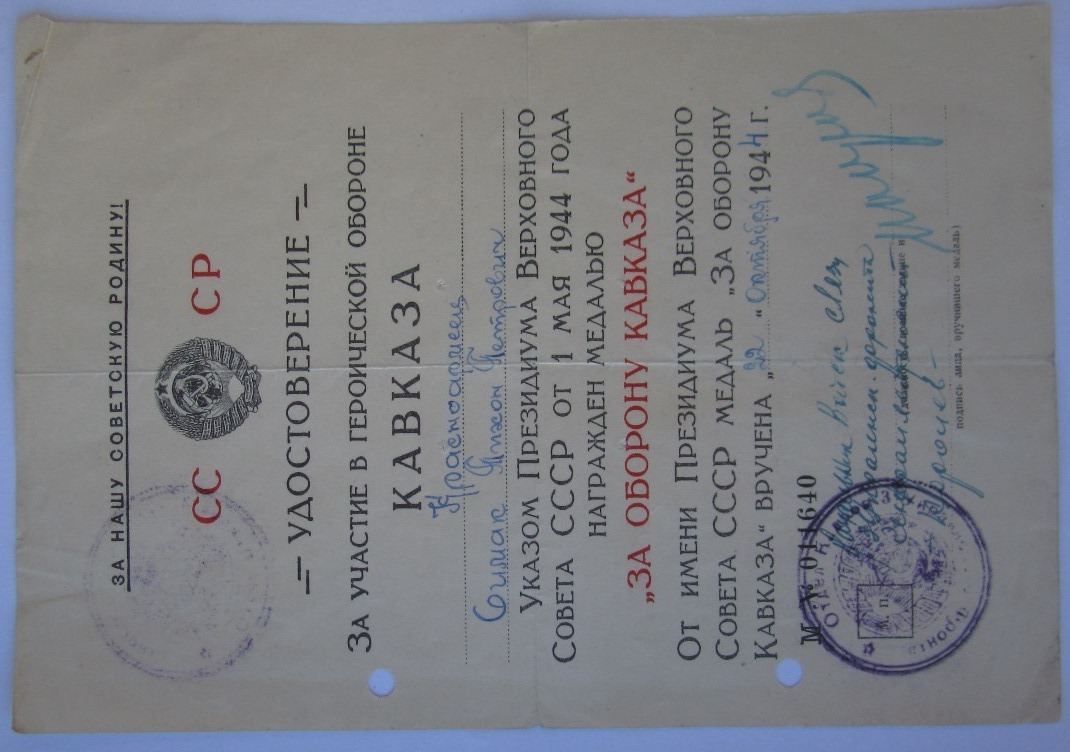 ЗА НАШУ СОВЕТСКУЮ РОДИНУ!
СС СР
УДОСТОВЕРЕНИЕ
ЗА УЧАСТИЕ В ГЕРОИЧЕСКОЙ ОБОРОНЕ
КАВКАЗА
Красноармеец
Симак Тихон Петрович
УКАЗОМ ПРЕЗИДИУМА ВЕРХОВНОГО
СОВЕТА СССР ОТ 1 МАЯ 1944 ГОДА
НАГРАЖДЕН МЕДАЛЬЮ
„ЗА ОБОРОНУ КАВКАЗА“
ОТ ИМЕНИ ПРЕЗИДИУМА ВЕРХОВНОГО
СОВЕТА СССР МЕДАЛЬ „ЗА ОБОРОНУ
КАВКАЗА“ ВРУЧЕНА „22“ Октября 1944 г.
М № 011640
Войск связи
фронта
генерал
Королев
М. П.
подпись лица, вручившего медаль)